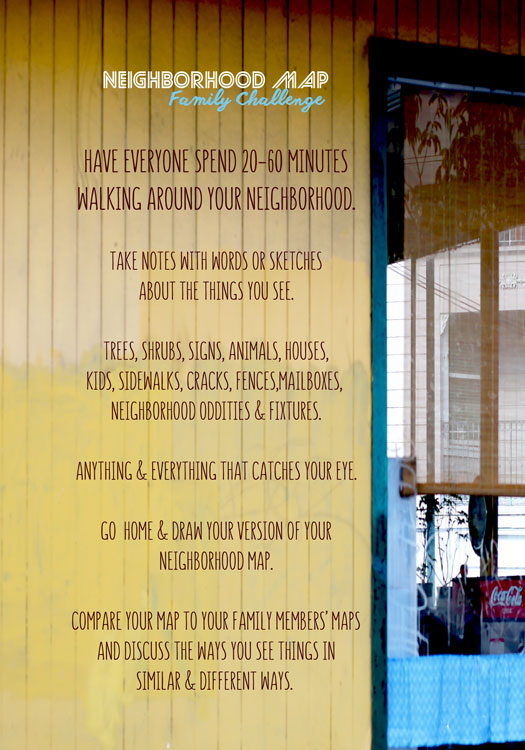 NEIGHBORHOOD MAP
Family Challenge
HAVE EVERYONE SPEND 20-60 MINUTES
WALKING AROUND YOUR NEIGHBORHOOD.
TAKE NOTES WITH WORDS OR SKETCHES
ABOUT THE THINGS YOU SEE.
TREES, SHRUBS, SIGNS, ANIMALS, HOUSES,
KIDS, SIDEWALKS, CRACKS, FENCES,MAILBOXES,
NEIGHBORHOOD ODDITIES & FIXTURES.
ANYTHING & EVERYTHING THAT CATCHES YOUR EYE.
GO HOME & DRAW YOUR VERSION OF YOUR
NEIGHBORHOOD MAP.
COMPARE YOUR MAP TO YOUR FAMILY MEMBERS' MAPS
AND DISCUSS THE WAYS YOU SEE THINGS IN
SIMILAR & DIFFERENT WAYS.
Coca-Cola